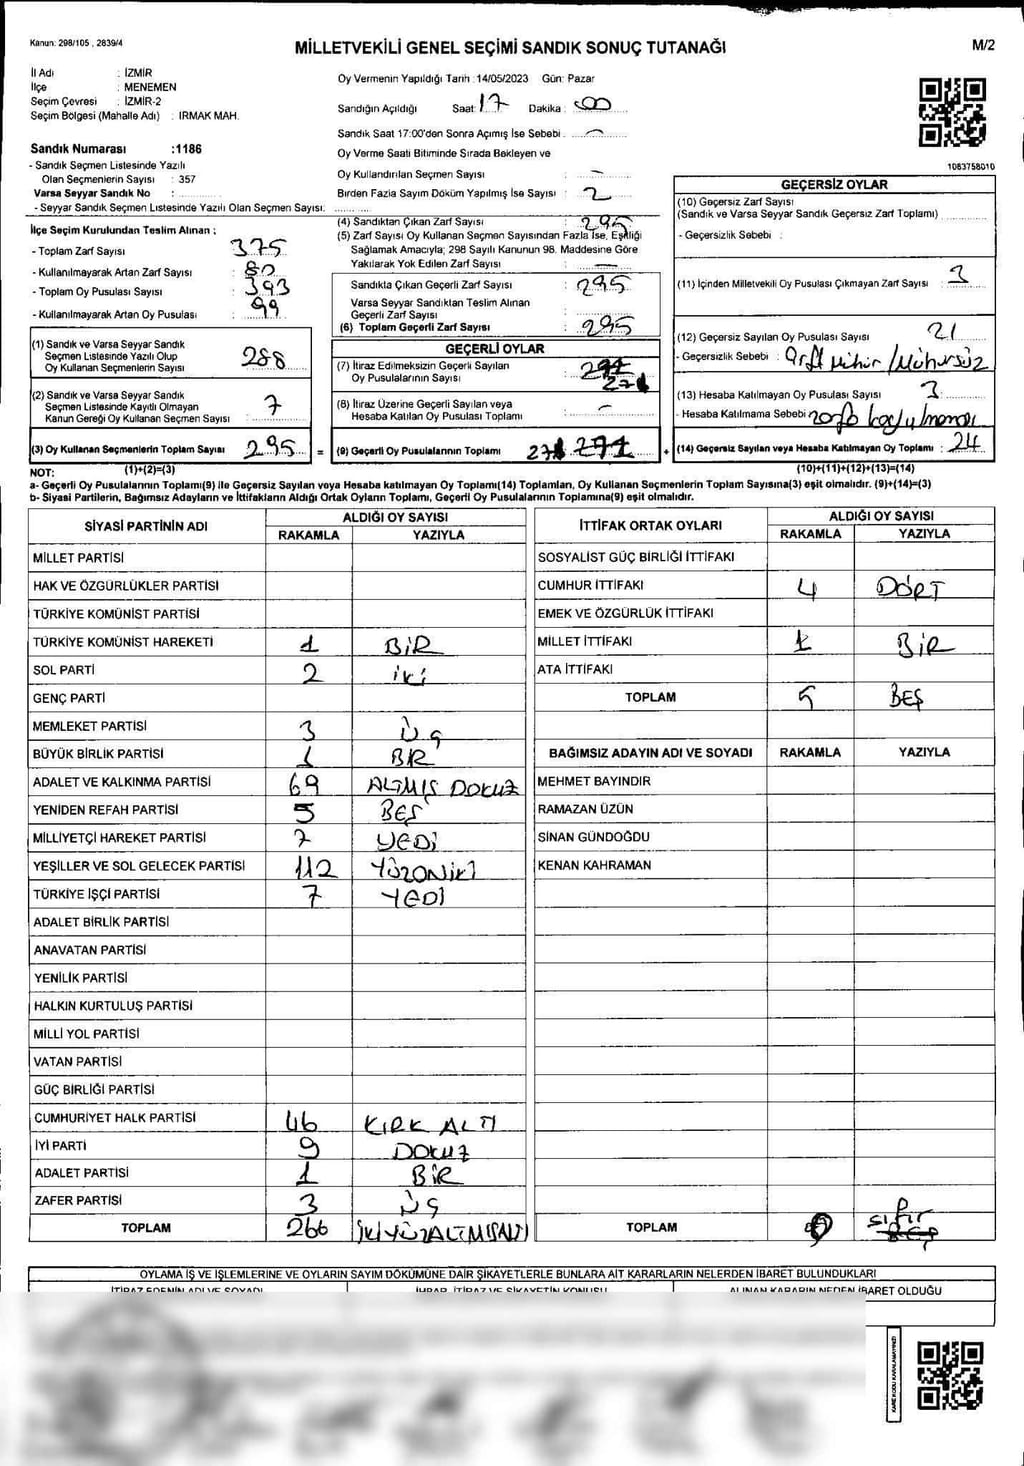 Kanun: 298/105, 2839/4
MİLLETVEKİLİ GENEL SEÇİMİ SANDIK SONUÇ TUTANAĞI
M/2
İl Adı : İZMİR
İlçe : MENEMEN
Seçim Çevresi : İZMİR-2
Seçim Bölgesi (Mahalle Adı) : IRMAK MAH.
Sandık Numarası :1186
- Sandık Seçmen Listesinde Yazılı
Olan Seçmenlerin Sayısı : 357
Varsa Seyyar Sandık No :
- Seyyar Sandık Seçmen Listesinde Yazılı Olan Seçmen Sayısı:
İlçe Seçim Kurulundan Teslim Alınan :
- Toplam Zarf Sayısı 375
- Kullanılmayarak Artan Zarf Sayısı : 80
- Toplam Oy Pusulası Sayısı : 393
- Kullanılmayarak Artan Oy Pusulası : 99
(1) Sandık ve Varsa Seyyar Sandık
Seçmen Listesinde Yazılı Olup
Oy Kullanan Seçmenlerin Sayısı : 288
(2) Sandık ve Varsa Seyyar Sandık
Seçmen Listesinde Kayıtlı Olmayan
Kanun Gereği Oy Kullanan Seçmen Sayısı : 7
(3) Oy Kullanan Seçmenlerin Toplam Sayısı : 295 =
Oy Vermenin Yapıldığı Tarih : 14/05/2023 Gün: Pazar
Sandığın Açıldığı Saat: 17 Dakika : 00
Sandık Saat 17:00'den Sonra Açımış İse Sebebi :
Oy Verme Saati Bitiminde Sırada Bekleyen ve
Oy Kullandırılan Seçmen Sayısı : -
Birden Fazla Sayım Döküm Yapılmış İse Sayısı : 2
(4) Sandıktan Çıkan Zarf Sayısı : 295
(5) Zarf Sayısı Oy Kullanan Seçmen Sayısından Fazla İse, Eşitliği
Sağlamak Amacıyla; 298 Sayılı Kanunun 98. Maddesine Göre
Yakılarak Yok Edilen Zarf Sayısı : -
Sandıkta Çıkan Geçerli Zarf Sayısı : 295
Varsa Seyyar Sandıktan Teslim Alınan
Geçerli Zarf Sayısı :
(6) Toplam Geçerli Zarf Sayısı : 295
GEÇERLİ OYLAR
(7) İtiraz Edilmeksizin Geçerli Sayılan
Oy Pusulalarının Sayısı : 271
(8) İtiraz Üzerine Geçerli Sayılan veya
Hesaba Katılan Oy Pusulası Toplamı : -
(9) Geçerli Oy Pusulalarının Toplamı 271 +
1083758010
GEÇERSİZ OYLAR
(10) Geçersiz Zarf Sayısı
(Sandık ve Varsa Seyyar Sandık Geçersiz Zarf Toplamı)
- Geçersizlik Sebebi :
(11) İçinden Milletvekili Oy Pusulası Çıkmayan Zarf Sayısı : 3
(12) Geçersiz Sayılan Oy Pusulası Sayısı 21
- Geçersizlik Sebebi : Çift mühür / Mühürsüz
(13) Hesaba Katılmayan Oy Pusulası Sayısı 3
- Hesaba Katılmama Sebebi :
(14) Geçersiz Sayılan veya Hesaba Katılmayan Oy Toplamı : 24
NOT: (1)+(2)=(3) (10)+(11)+(12)+(13)=(14)
a- Geçerli Oy Pusulalarının Toplamı(9) ile Geçersiz Sayılan veya Hesaba katılmayan Oy Toplamı(14) Toplamları, Oy Kullanan Seçmenlerin Toplam Sayısına(3) eşit olmalıdır. (9)+(14)=(3)
b- Siyasi Partilerin, Bağımsız Adayların ve İttifakların Aldığı Ortak Oyların Toplamı, Geçerli Oy Pusulalarının Toplamına(9) eşit olmalıdır.
SİYASİ PARTİNİN ADI ALDIĞI OY SAYISI
RAKAMLA YAZIYLA
MİLLET PARTİSİ
HAK VE ÖZGÜRLÜKLER PARTİSİ
TÜRKİYE KOMÜNİST PARTİSİ
TÜRKİYE KOMÜNİST HAREKETİ 1 BİR
SOL PARTİ 2 iki
GENÇ PARTİ
MEMLEKET PARTİSİ 3 ÜÇ
BÜYÜK BİRLİK PARTİSİ 1 BİR
ADALET VE KALKINMA PARTİSİ 69 ALTMIŞ DOKUZ
YENİDEN REFAH PARTİSİ 5 BEŞ
MİLLİYETÇİ HAREKET PARTİSİ 7 YEDİ
YEŞİLLER VE SOL GELECEK PARTİSİ 112 YÜZONİKİ
TÜRKİYE İŞÇİ PARTİSİ 7 YEDİ
ADALET BİRLİK PARTİSİ
ANAVATAN PARTİSİ
YENİLİK PARTİSİ
HALKIN KURTULUŞ PARTİSİ
MİLLİ YOL PARTİSİ
VATAN PARTİSİ
GÜÇ BİRLİĞİ PARTİSİ
CUMHURİYET HALK PARTİSİ 46 KIRK ALTI
İYİ PARTİ 9 DOKUZ
ADALET PARTİSİ 1 BİR
ZAFER PARTİSİ 3 ÜÇ
TOPLAM 266 İKİYÜZALTMIŞALTI
İTTİFAK ORTAK OYLARI ALDIĞI OY SAYISI
RAKAMLA YAZIYLA
SOSYALİST GÜÇ BİRLİĞİ İTTİFAKI
CUMHUR İTTİFAKI 4 DÖRT
EMEK VE ÖZGÜRLÜK İTTİFAKI
MİLLET İTTİFAKI 1 BİR
ATA İTTİFAKI
TOPLAM 5 BEŞ
BAĞIMSIZ ADAYIN ADI VE SOYADI RAKAMLA YAZIYLA
MEHMET BAYINDIR
RAMAZAN ÜZÜN
SİNAN GÜNDOĞDU
KENAN KAHRAMAN
TOPLAM 0 sıfır
OYLAMA İŞ VE İŞLEMLERİNE VE OYLARIN SAYIM DÖKÜMÜNE DAİR ŞİKAYETLERLE BUNLARA AİT KARARLARIN NELERDEN İBARET BULUNDUKLARI
İTİRAZ EDENİN ADI VE SOYADI İHBAR, İTİRAZ VE ŞİKAYETİN KONUSU ALINAN KARARIN NEDEN İBARET OLDUĞU
KARE KODU KARALAMAYINIZ!